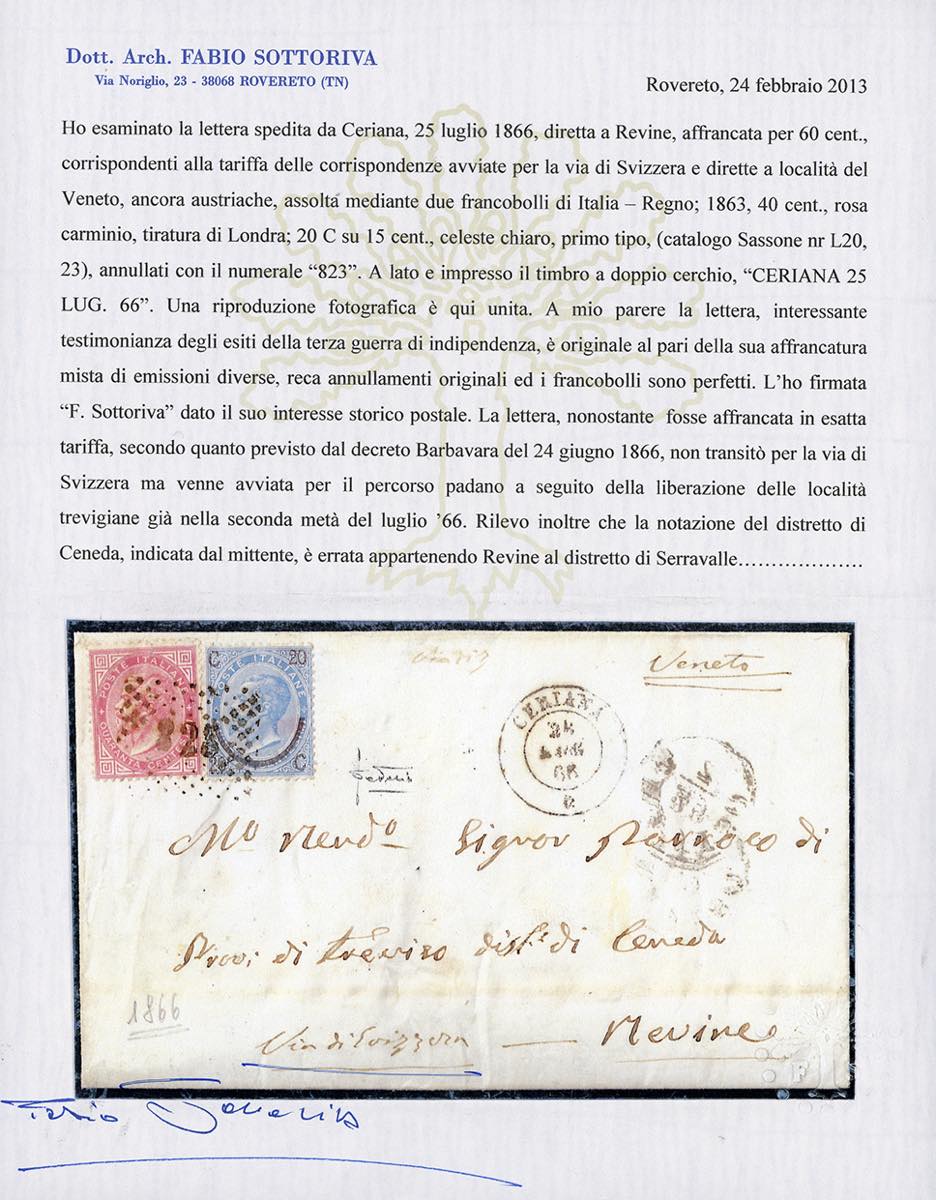 Dott. Arch. FABIO SOTTORIVA
Via Noriglio, 23 - 38068 ROVERETO (TN)
Rovereto, 24 febbraio 2013
Ho esaminato la lettera spedita da Ceriana, 25 luglio 1866, diretta a Revine, affrancata per 60 cent.,
corrispondenti alla tariffa delle corrispondenze avviate per la via di Svizzera e dirette a località del
Veneto, ancora austriache, assolta mediante due francobolli di Italia – Regno; 1863, 40 cent., rosa
carminio, tiratura di Londra; 20 C su 15 cent., celeste chiaro, primo tipo, (catalogo Sassone nr L20,
23), annullati con il numerale “823”. A lato e impresso il timbro a doppio cerchio, “CERIANA 25
LUG. 66”. Una riproduzione fotografica è qui unita. A mio parere la lettera, interessante
testimonianza degli esiti della terza guerra di indipendenza, è originale al pari della sua affrancatura
mista di emissioni diverse, reca annullamenti originali ed i francobolli sono perfetti. L’ho firmata
“F. Sottoriva” dato il suo interesse storico postale. La lettera, nonostante fosse affrancata in esatta
tariffa, secondo quanto previsto dal decreto Barbavara del 24 giugno 1866, non transitò per la via di
Svizzera ma venne avviata per il percorso padano a seguito della liberazione delle località
trevigiane già nella seconda metà del luglio ’66. Rilevo inoltre che la notazione del distretto di
Ceneda, indicata dal mittente, è errata appartenendo Revine al distretto di Serravalle....................
POSTE ITALIANE
QUARANTA CENTES
C 20
POSTE ITALIANE
20 C
823
Veneto
CERIANA
25
66
Mo Rendo Signor Parroco di
Prov: di Treviso dist. di Ceneda
1866
Via di Svizzera — Revine
Fabio Sottoriva